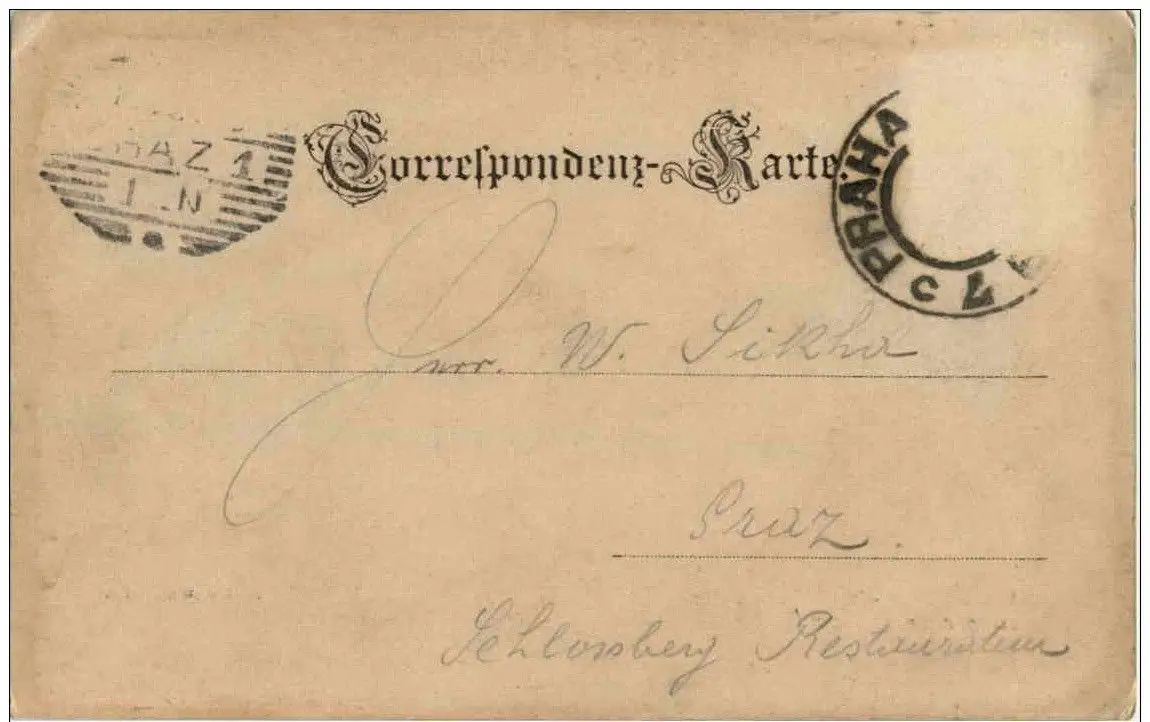 Correspondenz-Karte.
RAZ 1
1 .N
PRAHA
7
Herr. W. Sikha
Graz.
Schlossberg Restauration